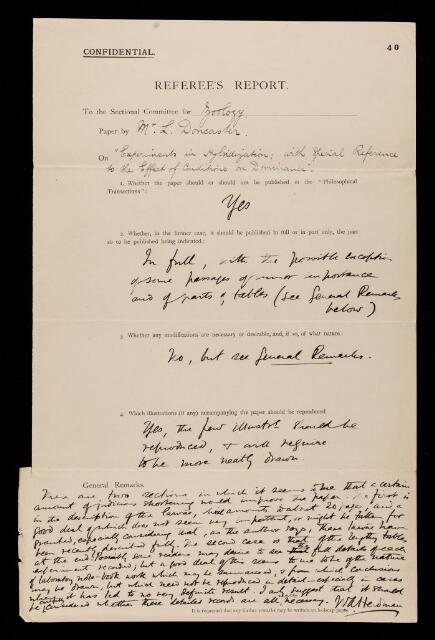 CONFIDENTIAL.
40
REFEREE'S REPORT.
To the Sectional Committee for Zoology
Paper by Mr. L. Doncaster.
On "Experiments in Hybridization; with Special Reference
to the Effect of Conditions on Dominance".
1. Whether the paper should or should not be published in the "Philosophical
Transactions":
Yes
2. Whether, in the former case, it should be published in full or in part only, the part
so to be published being indicated:
In full, with the possible exception
of some passages of minor importance
and of parts of tables (see General Remarks
below)
3. Whether any modifications are necessary or desirable, and, if so, of what nature:
No, but see General Remarks.
4. Which illustrations (if any) accompanying the paper should be reproduced
Yes, the few illustns should be
reproduced, & will require
to be more neatly drawn.
General Remarks.
There are two sections in which it seems to me that a certain
amount of judicious shortening would improve the paper. The first is
in the description of the larvae, which amounts to about 20 pages, and a
good deal of which does not seem very important, or might be taken for
granted, especially considering that, as the author says, these larvae have
been recently described fully. The second case is that of the lengthy tables
at the end. Possibly some readers may desire to see full details of each
experiment recorded; but a good deal of this seems to me to be of the nature
of laboratory note-book work which may be summarised, & from which conclusions
may be drawn, but which need not be reproduced in detail especially in cases
where it has led to no very definite result. I suggest that it should
be considered whether these detailed records are all necessary. W A Herdman
It is requested that any further remarks may be written on foolscap paper.